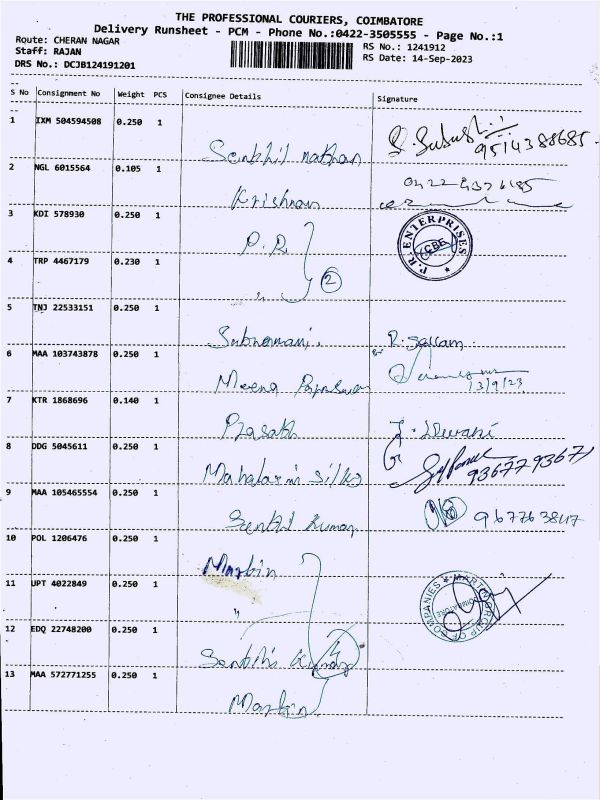 THE PROFESSIONAL COURIERS, COIMBATORE
Delivery Runsheet - PCM - Phone No.:0422-3505555 - Page No.:1
Route: CHERAN NAGAR
RS No.: 1241912
Staff: RAJAN
RS Date: 14-Sep-2023
DRS No.: DCJB124191201
S No Consignment No Weight PCS Consignee Details Signature
1 IXM 504594508 0.250 1
Senthil nathan
9514388685
2 NGL 6015564 0.105 1
Krishnan
3 KDI 578930 0.250 1
P.R
P.R. ENTERPRISES
CBE
4 TRP 4467179 0.230 1
" 2
5 TNJ 22533151 0.250 1
Subramani.
6 MAA 103743878 0.250 1
Meena
13/9/23
7 KTR 1868696 0.140 1
Prasath
8 DDG 5045611 0.250 1
Mahalaxmi silks
9367793671
9 MAA 105465554 0.250 1
Senthil Kumar
10 POL 1206476 0.250 1
Martin
11 UPT 4022849 0.250 1
"
MARTIN GROUP OF COMPANIES
COIMBATORE
12 EDQ 22748200 0.250 1
Senthil Kumar
13 MAA 572771255 0.250 1
Martin